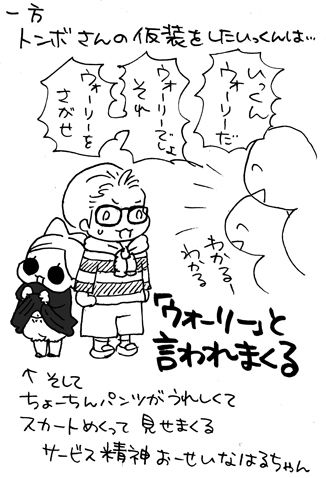 一方
トンボさんの仮装をしたいっくんは…
いっくん
ウォーリーだ
ウォーリーでしょ
それ
ウォーリーを
さがせ
わかるー
わかる
「ウォーリー」と
言われまくる
↑そして
ちょーちんパンツがうれしくて
スカートめくって見せまくる
サービス精神おーせいなはるちゃん